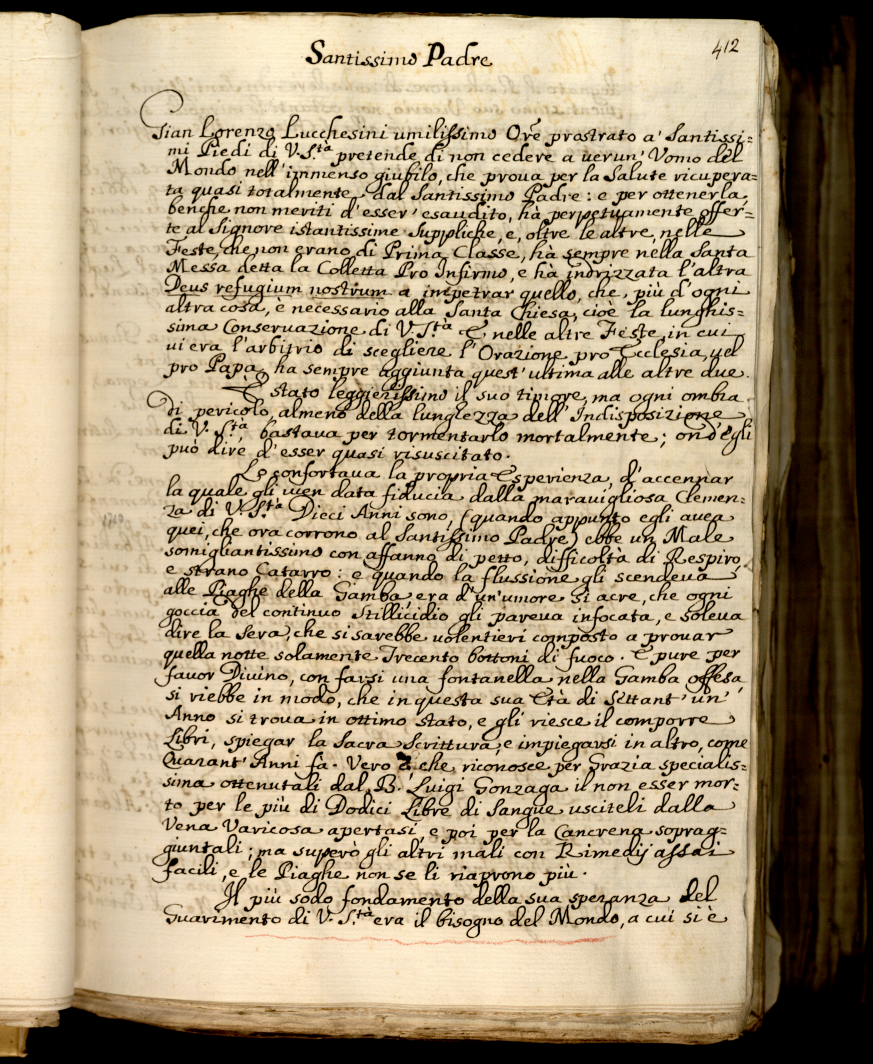 412
Santissimo Padre
Gian Lorenzo Lucchesini umilissimo Ore prostrato a' Santissi=
mi Piedi di V. S.tà pretende di non cedere a uerun' Vomo del
Mondo nell'immenso giubilo, che proua per la Salute ricupera=
ta quasi totalmente dal Santissimo Padre: e per ottenerla,
benche non meriti d'esser' esaudito, hà perpetuamente offer=
te al Signore istantissime Suppliche, e, oltre le altre, nelle
Feste, che non erano di Prima Classe, hà sempre nella Santa
Messa detta la Colletta Pro Infirmo, e hà indrizzata l'altra
Deus refugium nostrum a impetrar quello, che più d'ogni
altra cosa, è necessario alla Santa Chiesa, cioè la lunghis=
sima Conseruazione di V. Stà E nelle altre Feste, in cui
ui era l'arbitrio di scegliere l'Orazione pro Ecclesia, uel
pro Papa, ha sempre aggiunta quest'ultima alle altre due.
È stato leggierissimo il suo timore, ma ogni ombra
di pericolo, almeno della lunghezza dell'Indisposizione
di V. S.tà, bastaua per tormentarlo mortalmente; ond'egli
può dire d'esser quasi risuscitato.
Lo confortaua la propria Esperienza, d'accennar
la quale gli uien data fiducia dalla marauigliosa Clemen=
za di V. Stà Dieci Anni sono, (quando appunto egli auea
quei, che ora corrono al Santissimo Padre) ebbe un Male
somigliantissimo con affanno di petto, difficoltà di Respiro,
e strano Catarro: e quando la flussione gli scendeua
alle Piaghe della Gamba era d'un'umore sì acre, che ogni
goccia del continuo Stillicidio gli pareua infocata, e soleua
dire la Sera, che si sarebbe uolentieri composto a prouar
quella notte solamente Trecento bottoni di fuoco. E pure per
fauor Diuino, con farsi una fontanella nella Gamba offesa,
si riebbe in modo, che in questa sua Età di Settant'un'
Anno si troua in ottimo stato, e gli riesce il comporre
Libri, spiegar la Sacra Scrittura, e impiegarsi in altro, come
Quarant'Anni fa. Vero è, che riconosce per Grazia specialis=
sima ottenutali dal B. Luigi Gonzaga il non esser mor=
to per le più di Dodici Libre di Sangue usciteli dalla
Vena Varicosa apertasi, e poi per la Cancrena soprag=
giuntali; ma superò gli altri mali con Rimedij assai
facili, e le Piaghe non se li riaprono più.
Il più sodo fondamento della sua speranza del
Guarimento di V. S.tà era il bisogno del Mondo, a cui si è